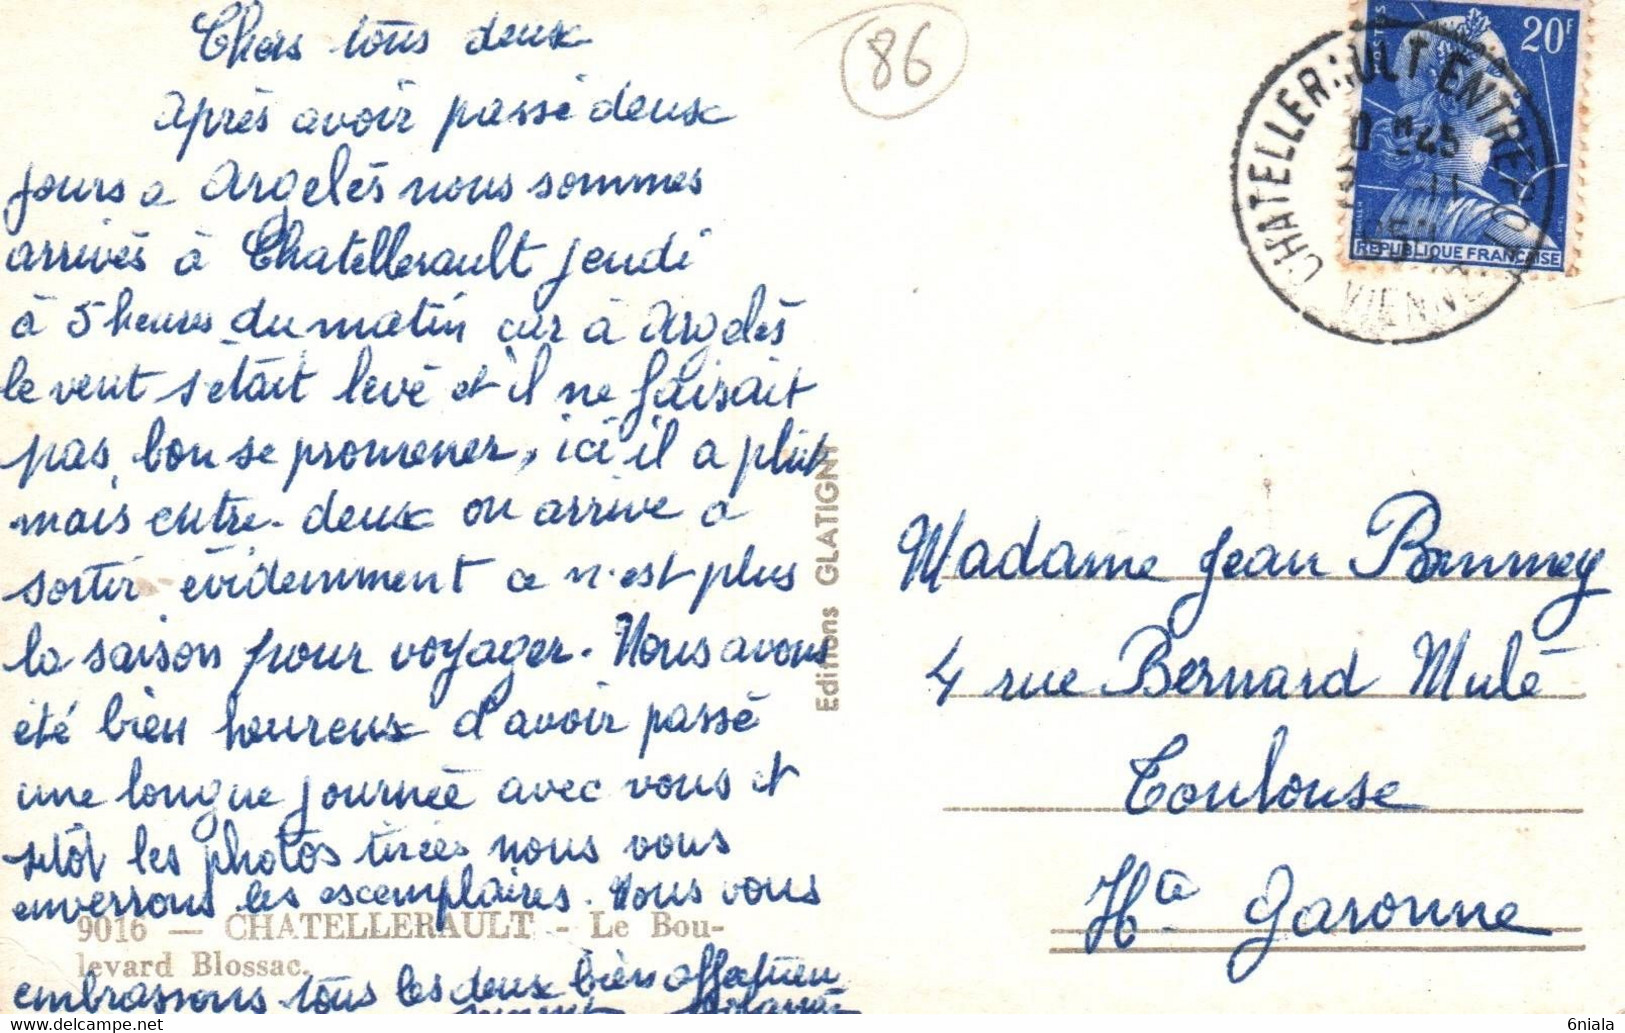 Chers tous deux
après avoir passé deux
jours a Argelès nous sommes
arrivés à Chatellerault jeudi
à 5 heures du matin car à Argelès
le vent s'était levé et il ne faisait
pas bon se promener, ici il a plu
mais entre-deux on arrive a
sortir évidemment ce n'est plus
la saison pour voyager. Nous avons
été bien heureux d'avoir passé
une longue journée avec vous et
sitôt les photos tirées nous vous
enverrons les exemplaires. Nous vous
embrassons tous les deux bien affectueu-
sement
9016 — CHATELLERAULT - Le Bou-
levard Blossac.
Editions GLATIGNY
86
20F
POSTES
REPUBLIQUE FRANÇAISE
CHATELLERAULT ENTREPOT
VIENNE
Madame Jean
4 rue Bernard Mulé
Toulouse
Hte Garonne
delcampe.net
6niala